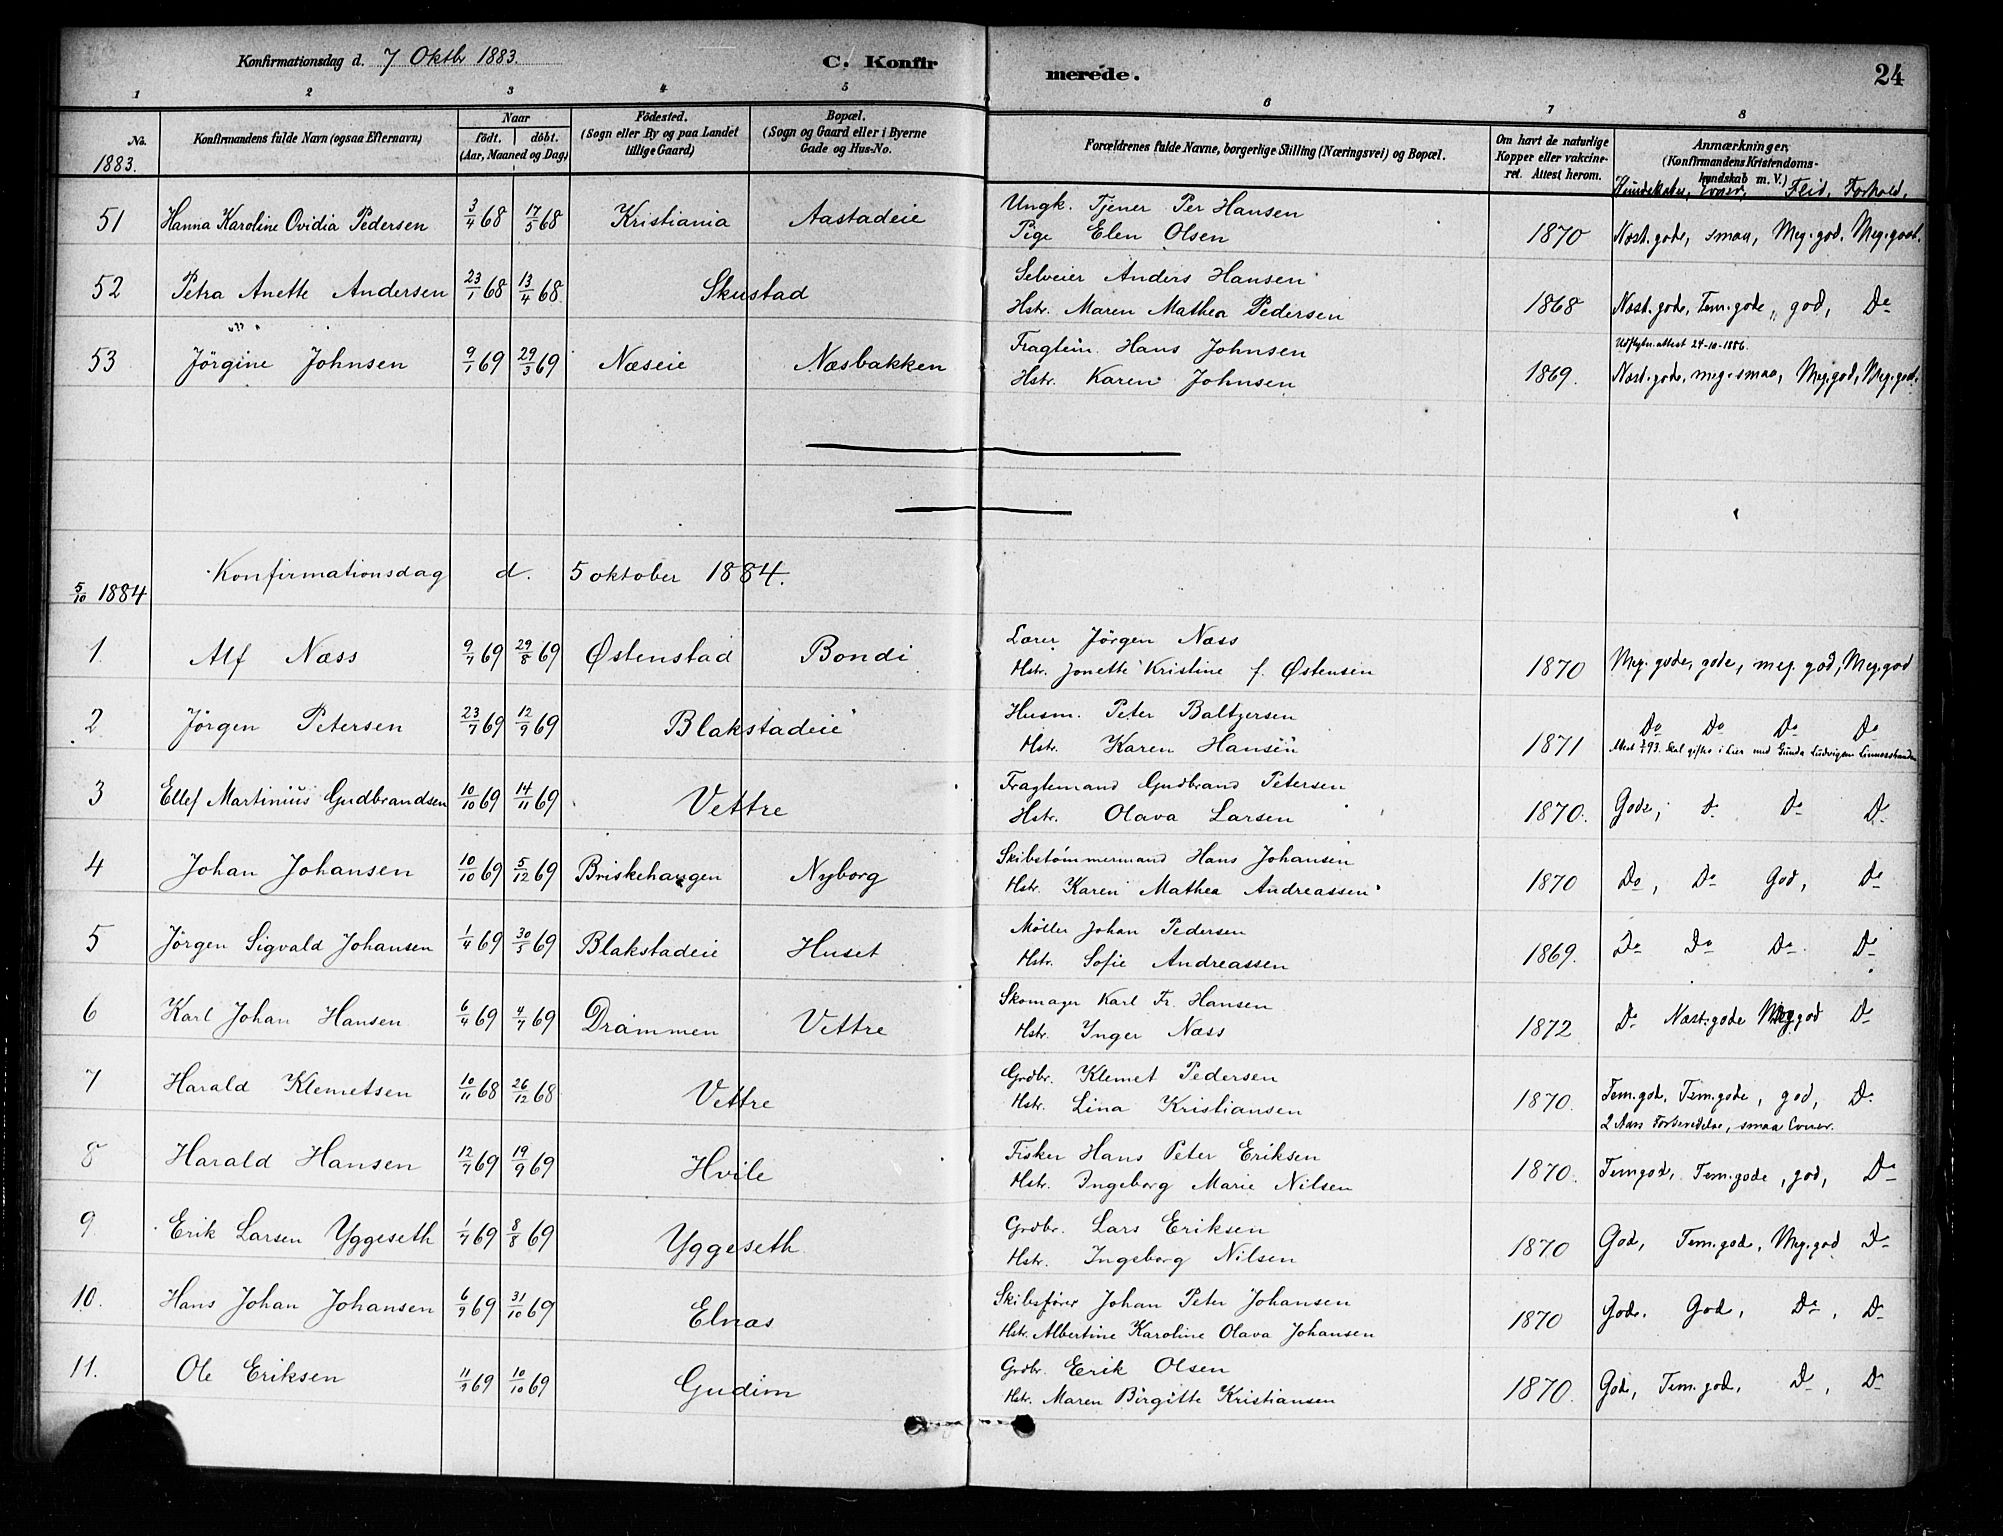 Konfirmationsdag d. 7 Oktbr 1883. C. Konfirmerede. 24
1 2 3 4 5 6 7 8
No. Konfirmandens fulde Navn (ogsaa Efternavn) Naar født. døbt. (Aar, Maaned og Dag) Födested. (Sogn eller By og paa Landet tillige Gaard) Bopæl. (Sogn og Gaard eller i Byerne Gade og Hus-No. Forældrenes fulde Navne, borgerlige Stilling (Næringsvei) og Bopæl. Om havt de naturlige Kopper eller vakcineret. Attest herom. Anmærkninger, (Konfirmandens Kristendomskundskab m. V.)
1883. Kundskaber, Evner, Flid, Forhold,
51 Hanna Karoline Ovidia Pedersen 3/4 68 17/5 68 Kristiania Aastadeie Ungk. Tjener Per Hansen
Pige Elen Olsen 1870 Næst.gode, smaa, Meg.god. Meg.godt.
52 Petra Anette Andersen 23/1 68 13/4 68 Skustad Selveier Anders Hansen
Hstr. Maren Mathea Pedersen 1868 Næst.gode, Tem.gode, god, Do
53 Jörgine Johnsen 9/1 69 29/3 69 Næseie Næsbakken Fragtem. Hans Johnsen Udflytn.attest 24-10-1886.
Hstr. Karen Johnsen 1869. Næst.gode, meg.smaa, Meg.god, Meg.god.
5/10 1884 Konfirmationsdag d. 5 oktober 1884.
1. Alf Næss 9/7 69 29/8 69 Østenstad Bondi Lærer Jörgen Næss
Hstr. Jonette Kristine f. Østensen 1870 Meg.gode, gode, meg.god, Meg.god
2 Jörgen Petersen 23/7 69 12/9 69 Blakstadeie Husm. Peter Baltzersen Do Do Do Do
Hstr. Karen Hansen 1871 Attest 93. Skal giftes i Lier med Gunda Ludvigsen Linnesstranden
3 Ellef Martinius Gudbrandsen 10/10 69 14/11 69 Vettre Fragtemand Gudbrand Petersen
Hstr. Olava Larsen 1870. Gode, Do Do Do
4 Johan Johansen 10/10 69 5/12 69 Briskehaugen Nyborg Skibstømmermand Hans Johansen
Hstr. Karen Mathea Andreassen 1870 Do, Do God, Do
5 Jörgen Sigvald Johansen 1/4 69 30/5 69 Blakstadeie Huset Møller Johan Pedersen
Hstr. Sofie Andreassen 1869. Do Do Do Do
6 Karl Johan Hansen 6/4 69 4/7 69 Drammen Vettre Skomager Karl Fr. Hansen
Hstr. Inger Næss 1872 Do Næst.gode Meg.god Do
7 Harald Klemetsen 10/11 68 26/12 68 Vettre Grdbr. Klemet Pedersen
Hstr. Lina Kristiansen 1870. Tem.god, Tem.gode, god, Do
2 Aars Forberedelse, smaa Evner.
8 Harald Hansen 12/7 69 19/9 69 Hvile Fisker Hans Peter Eriksen
Hstr. Ingeborg Marie Nilsen 1870. Temgod, Tem.gode, god, Do
9 Erik Larsen Yggeseth 1/7 69 8/8 69 Yggeseth Grdbr. Lars Eriksen
Hstr. Ingeborg Nilsen 1870 God, Tem.gode, Meg.god Do
10. Hans Johan Johansen 6/9 69 31/10 69 Elnæs Skibsfører Johan Peter Johansen
Hstr. Albertine Karoline Olava Johansen 1870 Gode. God, Do, Do
11. Ole Eriksen 11/9 69 10/10 69 Gudim Grdbr. Erik Olsen
Hstr. Maren Birgitte Kristiansen 1870. God, Tem.god, Do, Do